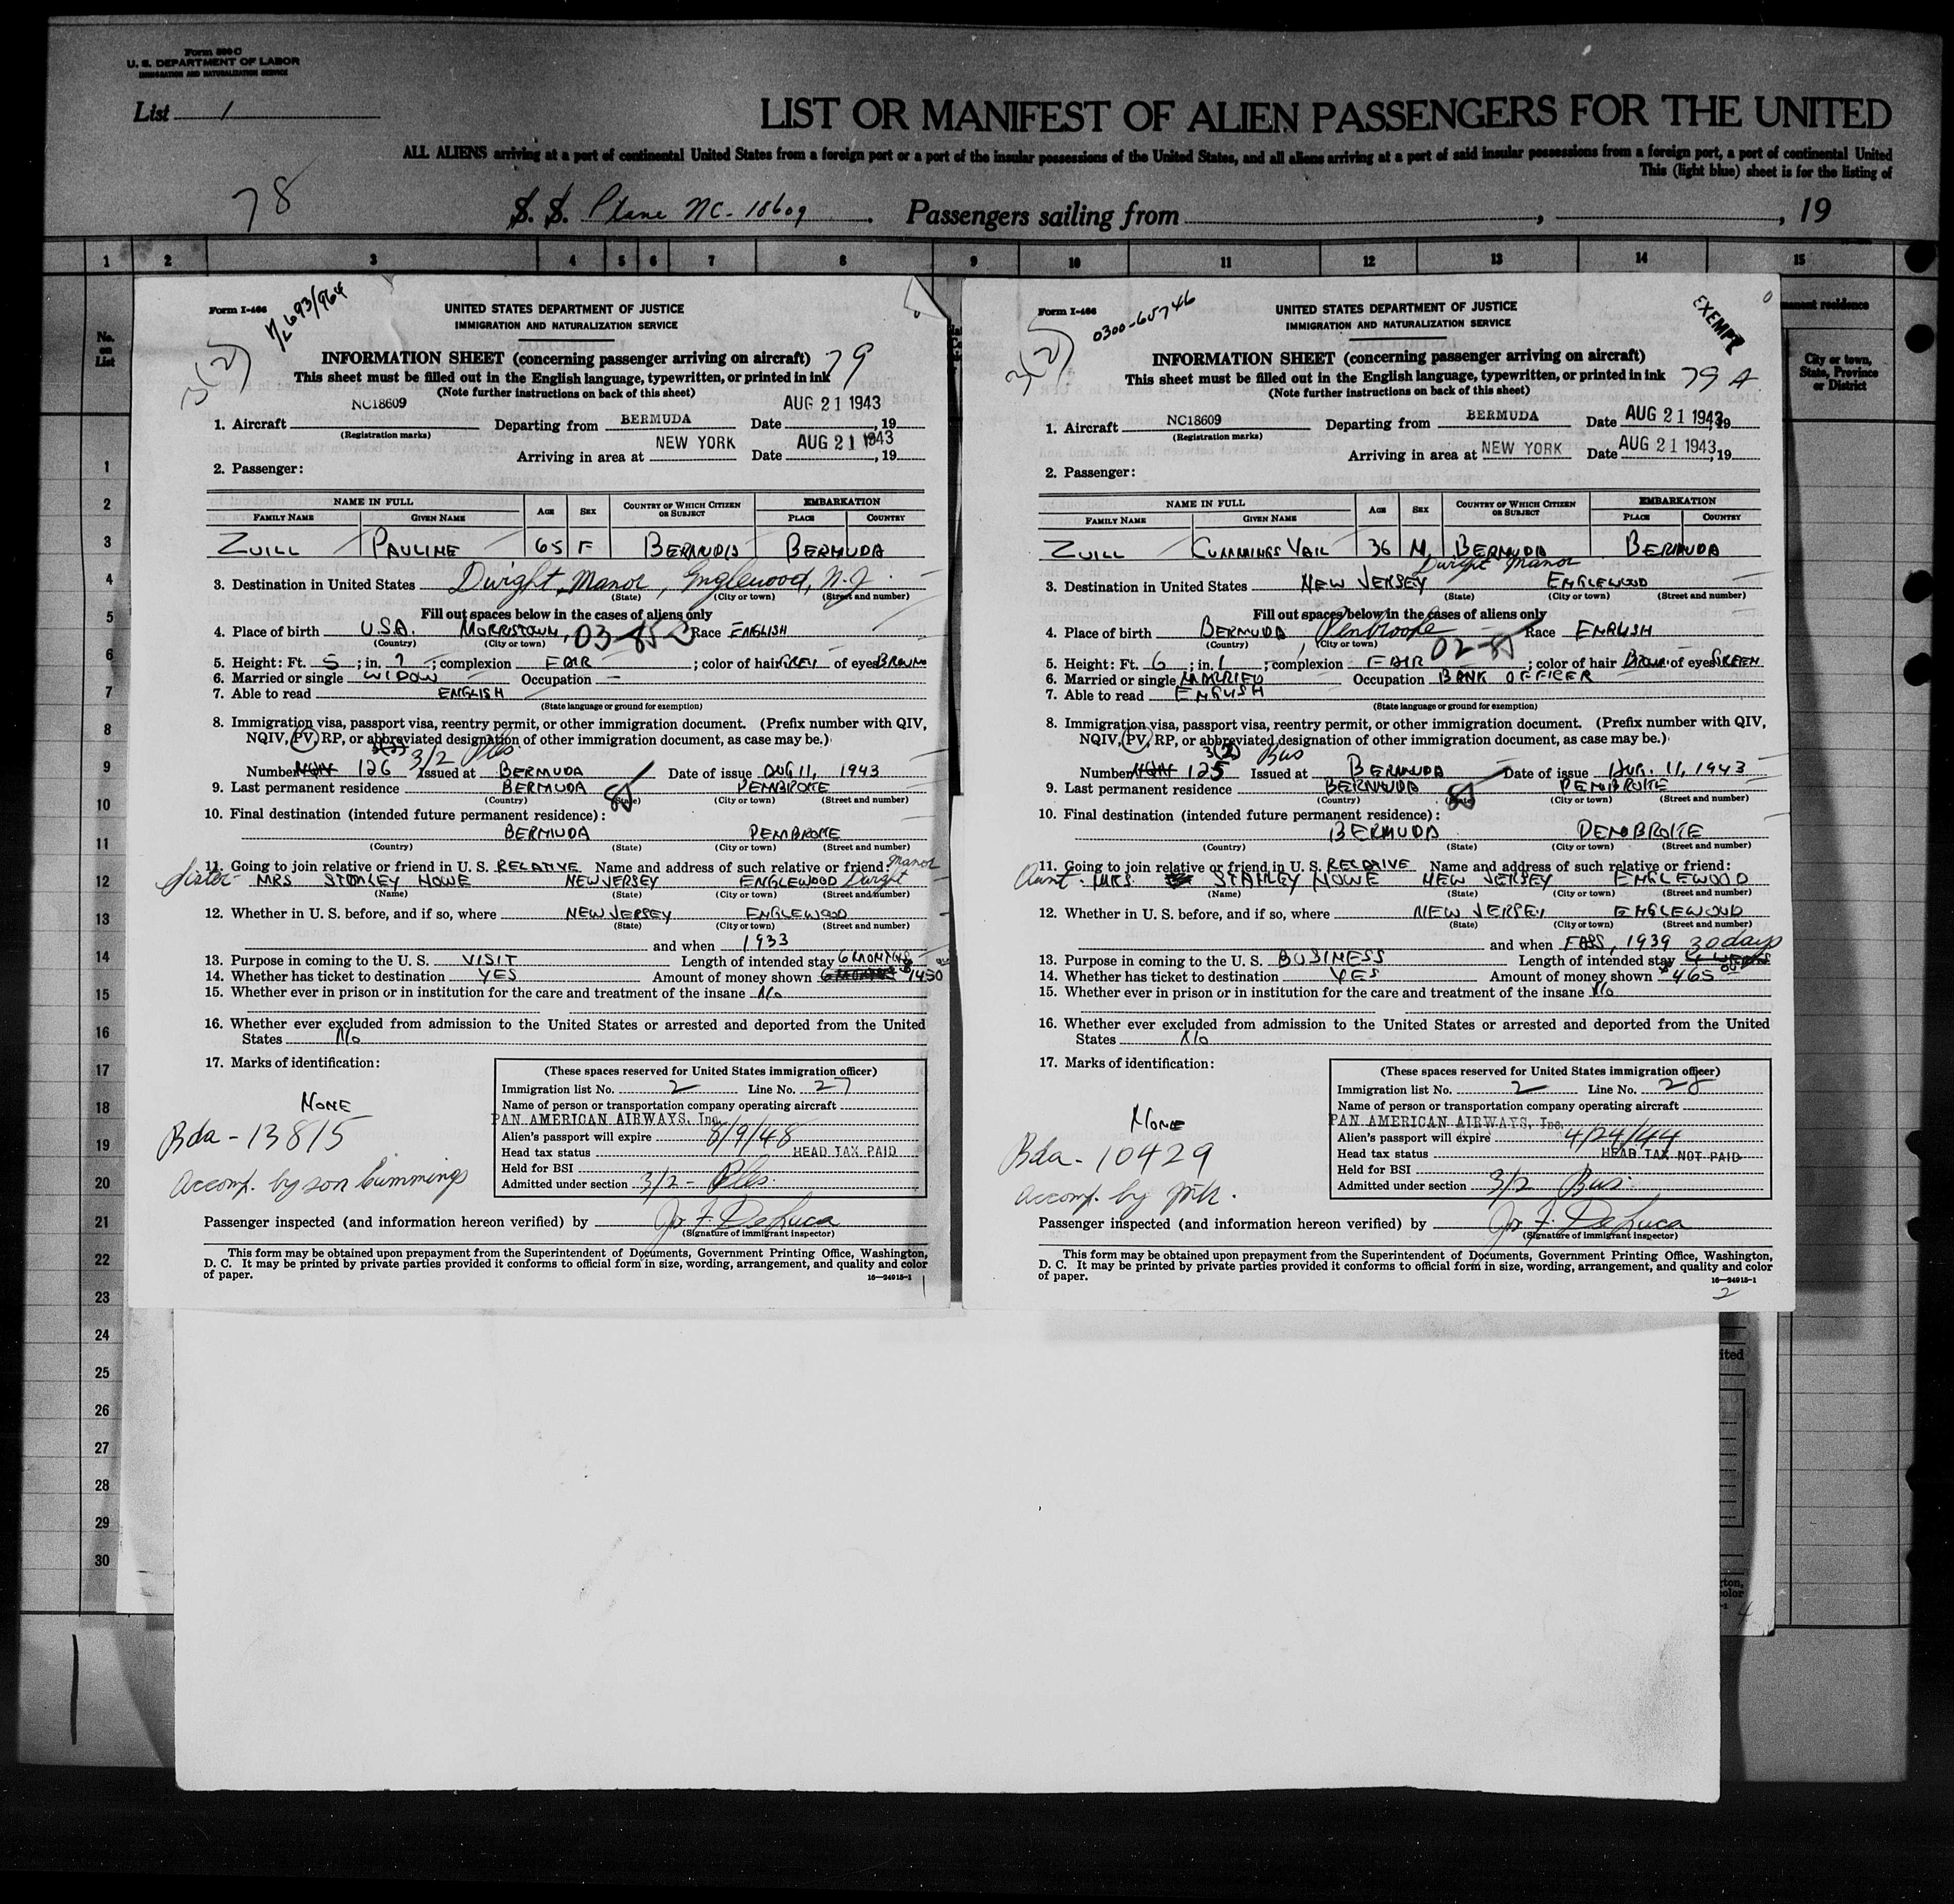 Form 500 C
U. S. DEPARTMENT OF LABOR
IMMIGRATION AND NATURALIZATION SERVICE
List 1
LIST OR MANIFEST OF ALIEN PASSENGERS FOR THE UNITED
ALL ALIENS arriving at a port of continental United States from a foreign port or a port of the insular possessions of the United States, and all aliens arriving at a port of said insular possessions from a foreign port, a port of continental United
This (light blue) sheet is for the listing of
78
S. S. Plane NC-18609. Passengers sailing from , , 19
1 2 3 4 5 6 7 8 9 10 11 12 13 14 15
No. on List
1
2
3
4
5
6
7
8
9
10
11
12
13
14
15
16
17
18
19
20
21
22
23
24
25
26
27
28
29
30
Form I-466
693/964
3(2)
UNITED STATES DEPARTMENT OF JUSTICE
IMMIGRATION AND NATURALIZATION SERVICE
INFORMATION SHEET (concerning passenger arriving on aircraft) 79
This sheet must be filled out in the English language, typewritten, or printed in ink
(Note further instructions on back of this sheet)
1. Aircraft NC18609 Departing from BERMUDA Date AUG 21 1943, 19
(Registration marks)
Arriving in area at NEW YORK Date AUG 21 1943, 19
2. Passenger:
NAME IN FULL AGE SEX COUNTRY OF WHICH CITIZEN OR SUBJECT EMBARKATION
FAMILY NAME GIVEN NAME PLACE COUNTRY
ZUILL PAULINE 65 F BERMUDA BERMUDA
3. Destination in United States Dwight Manor, Englewood, N.J.
(State) (City or town) (Street and number)
Fill out spaces below in the cases of aliens only
4. Place of birth U.S.A. MORRISTOWN, 03-85 2 Race ENGLISH
(Country) (City or town)
5. Height: Ft. 5; in. 7; complexion FAIR; color of hair GREY of eyes BROWN
6. Married or single WIDOW Occupation —
7. Able to read ENGLISH
(State language or ground for exemption)
8. Immigration visa, passport visa, reentry permit, or other immigration document. (Prefix number with QIV,
NQIV, PV, RP, or abbreviated designation of other immigration document, as case may be.)
3/2 Pls
Number NQIV 126 Issued at BERMUDA Date of issue AUG 11, 1943
9. Last permanent residence BERMUDA 85 PEMBROKE
(Country) (State) (City or town) (Street and number)
10. Final destination (intended future permanent residence):
BERMUDA PEMBROKE
(Country) (State) (City or town) (Street and number)
11. Going to join relative or friend in U. S. RELATIVE Name and address of such relative or friend: Manor
Sister - MRS STANLEY HOWE NEW JERSEY ENGLEWOOD Dwight
(Name) (State) (City or town) (Street and number)
12. Whether in U. S. before, and if so, where NEW JERSEY ENGLEWOOD
(State) (City or town) (Street and number)
and when 1933
13. Purpose in coming to the U. S. VISIT Length of intended stay 6 MONTHS
14. Whether has ticket to destination YES Amount of money shown 6 MONTHS $1450
15. Whether ever in prison or in institution for the care and treatment of the insane No
16. Whether ever excluded from admission to the United States or arrested and deported from the United
States No
17. Marks of identification:
NONE
Bda - 13815
Accomp. by son Cummings
(These spaces reserved for United States immigration officer)
Immigration list No. 2 Line No. 27
Name of person or transportation company operating aircraft
PAN AMERICAN AIRWAYS, Inc.
Alien's passport will expire 8/9/48
Head tax status HEAD TAX PAID
Held for BSI
Admitted under section 3/2 - Ples.
Passenger inspected (and information hereon verified) by Jos. F. DeLuca
(Signature of immigrant inspector)
This form may be obtained upon prepayment from the Superintendent of Documents, Government Printing Office, Washington,
D. C. It may be printed by private parties provided it conforms to official form in size, wording, arrangement, and quality and color
of paper. 16—24915-1
1
Form I-466
0300-65746
EXEMPT
3(2)
UNITED STATES DEPARTMENT OF JUSTICE
IMMIGRATION AND NATURALIZATION SERVICE
INFORMATION SHEET (concerning passenger arriving on aircraft)
This sheet must be filled out in the English language, typewritten, or printed in ink 79 A
(Note further instructions on back of this sheet)
1. Aircraft NC18609 Departing from BERMUDA Date AUG 21 1943, 19
(Registration marks)
Arriving in area at NEW YORK Date AUG 21 1943, 19
2. Passenger:
NAME IN FULL AGE SEX COUNTRY OF WHICH CITIZEN OR SUBJECT EMBARKATION
FAMILY NAME GIVEN NAME PLACE COUNTRY
ZUILL CUMMINGS VAIL 36 M. BERMUDA BERMUDA
Dwight Manor
3. Destination in United States NEW JERSEY ENGLEWOOD
(State) (City or town) (Street and number)
Fill out spaces below in the cases of aliens only
4. Place of birth BERMUDA, Pembroke 02-85 Race ENGLISH
(Country) (City or town)
5. Height: Ft. 6; in. 1; complexion FAIR; color of hair BROWN of eyes GREEN
6. Married or single MARRIED Occupation BANK OFFICER
7. Able to read ENGLISH
(State language or ground for exemption)
8. Immigration visa, passport visa, reentry permit, or other immigration document. (Prefix number with QIV,
NQIV, PV, RP, or abbreviated designation of other immigration document, as case may be.)
3(2) Bus
Number NQIV 125 Issued at BERMUDA Date of issue AUG. 11, 1943
9. Last permanent residence BERMUDA 85 PEMBROKE
(Country) (State) (City or town) (Street and number)
10. Final destination (intended future permanent residence):
BERMUDA PEMBROKE
(Country) (State) (City or town) (Street and number)
11. Going to join relative or friend in U. S. RELATIVE Name and address of such relative or friend:
Aunt - MRS. STANLEY HOWE NEW JERSEY ENGLEWOOD
(Name) (State) (City or town) (Street and number)
12. Whether in U. S. before, and if so, where NEW JERSEY ENGLEWOOD
(State) (City or town) (Street and number)
and when 1939 30 days
13. Purpose in coming to the U. S. BUSINESS Length of intended stay
14. Whether has ticket to destination YES Amount of money shown $465 00
15. Whether ever in prison or in institution for the care and treatment of the insane No
16. Whether ever excluded from admission to the United States or arrested and deported from the United
States No
17. Marks of identification:
NONE
Bda - 10429
Accomp. by mth.
(These spaces reserved for United States immigration officer)
Immigration list No. 2 Line No. 28
Name of person or transportation company operating aircraft
PAN AMERICAN AIRWAYS, Inc.
Alien's passport will expire 4/24/44
Head tax status HEAD TAX NOT PAID
Held for BSI
Admitted under section 3/2 Bus.
Passenger inspected (and information hereon verified) by Jos. F. DeLuca
(Signature of immigrant inspector)
This form may be obtained upon prepayment from the Superintendent of Documents, Government Printing Office, Washington,
D. C. It may be printed by private parties provided it conforms to official form in size, wording, arrangement, and quality and color
of paper. 16—24915-1
2
manent residence
City or town, State, Province or District
ited
ton,
color
-1
4